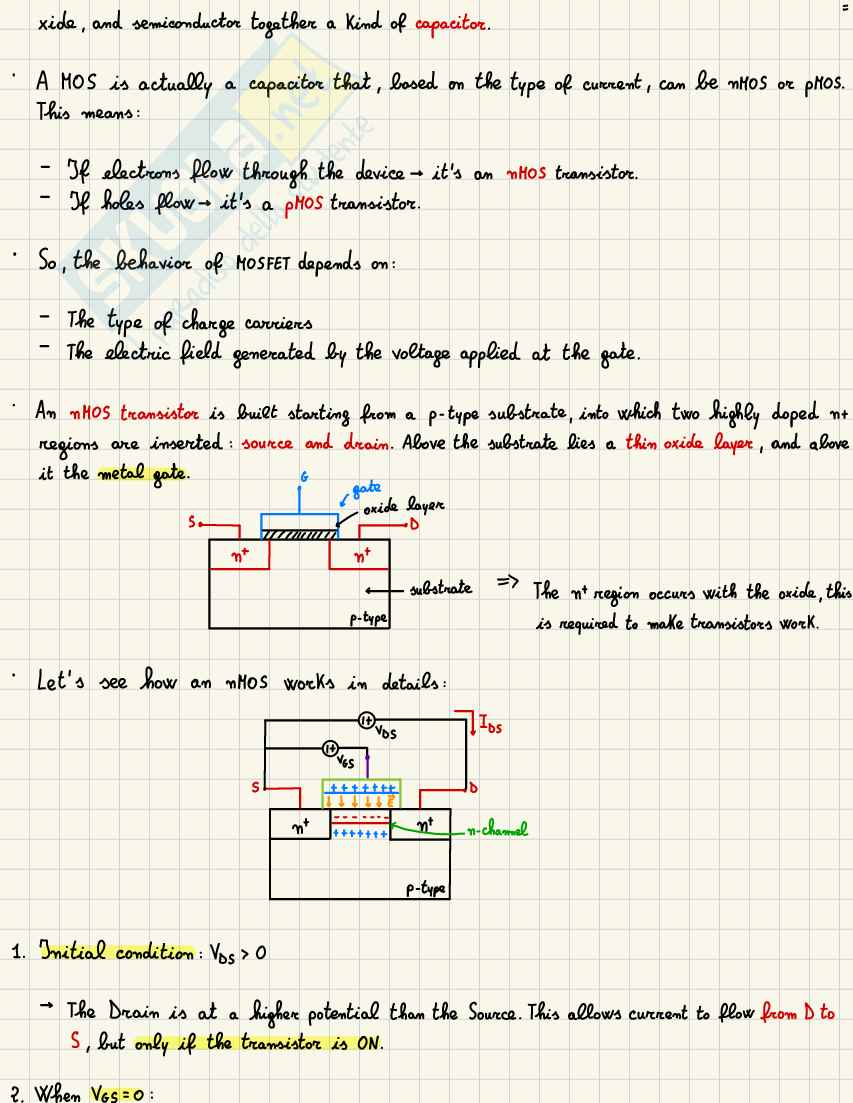 =
xide, and semiconductor together a kind of capacitor.
· A MOS is actually a capacitor that, based on the type of current, can be nMOS or pMOS.
This means:
- If electrons flow through the device → it's an nMOS transistor.
- If holes flow → it's a pMOS transistor.
· So, the behavior of MOSFET depends on:
- The type of charge carriers
- The electric field generated by the voltage applied at the gate.
· An nMOS transistor is built starting from a p-type substrate, into which two highly doped n+
regions are inserted: source and drain. Above the substrate lies a thin oxide layer, and above
it the metal gate.
G
gate
oxide layer
S
D
n⁺
n⁺
substrate
p-type
=> The n⁺ region occurs with the oxide, this
is required to make transistors work.
· Let's see how an nMOS works in details:
V_DS
I_DS
V_GS
S
D
+ + + + + + +
E
n⁺
- - - - - - -
n⁺
+ + + + + + +
n-channel
p-type
1. Initial condition: V_DS > 0
→ The Drain is at a higher potential than the Source. This allows current to flow from D to
S, but only if the transistor is ON.
2. When V_GS = 0:
SKUOLA.net